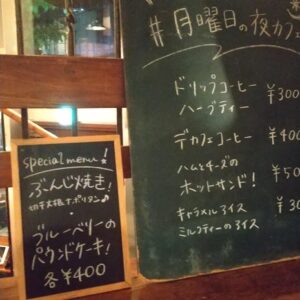 special menu!
ぶんじ焼き!
切干大根ナポリタン♪
・
ブルーベリーの
パウンドケーキ!
各¥400
#月曜日の夜カフェ
ドリップコーヒー ¥300
ハーブティー
デカフェコーヒー ¥400
ハムとチーズの
ホットサンド! ¥50
キャラメルアイス ¥30
ミルクティーのアイス